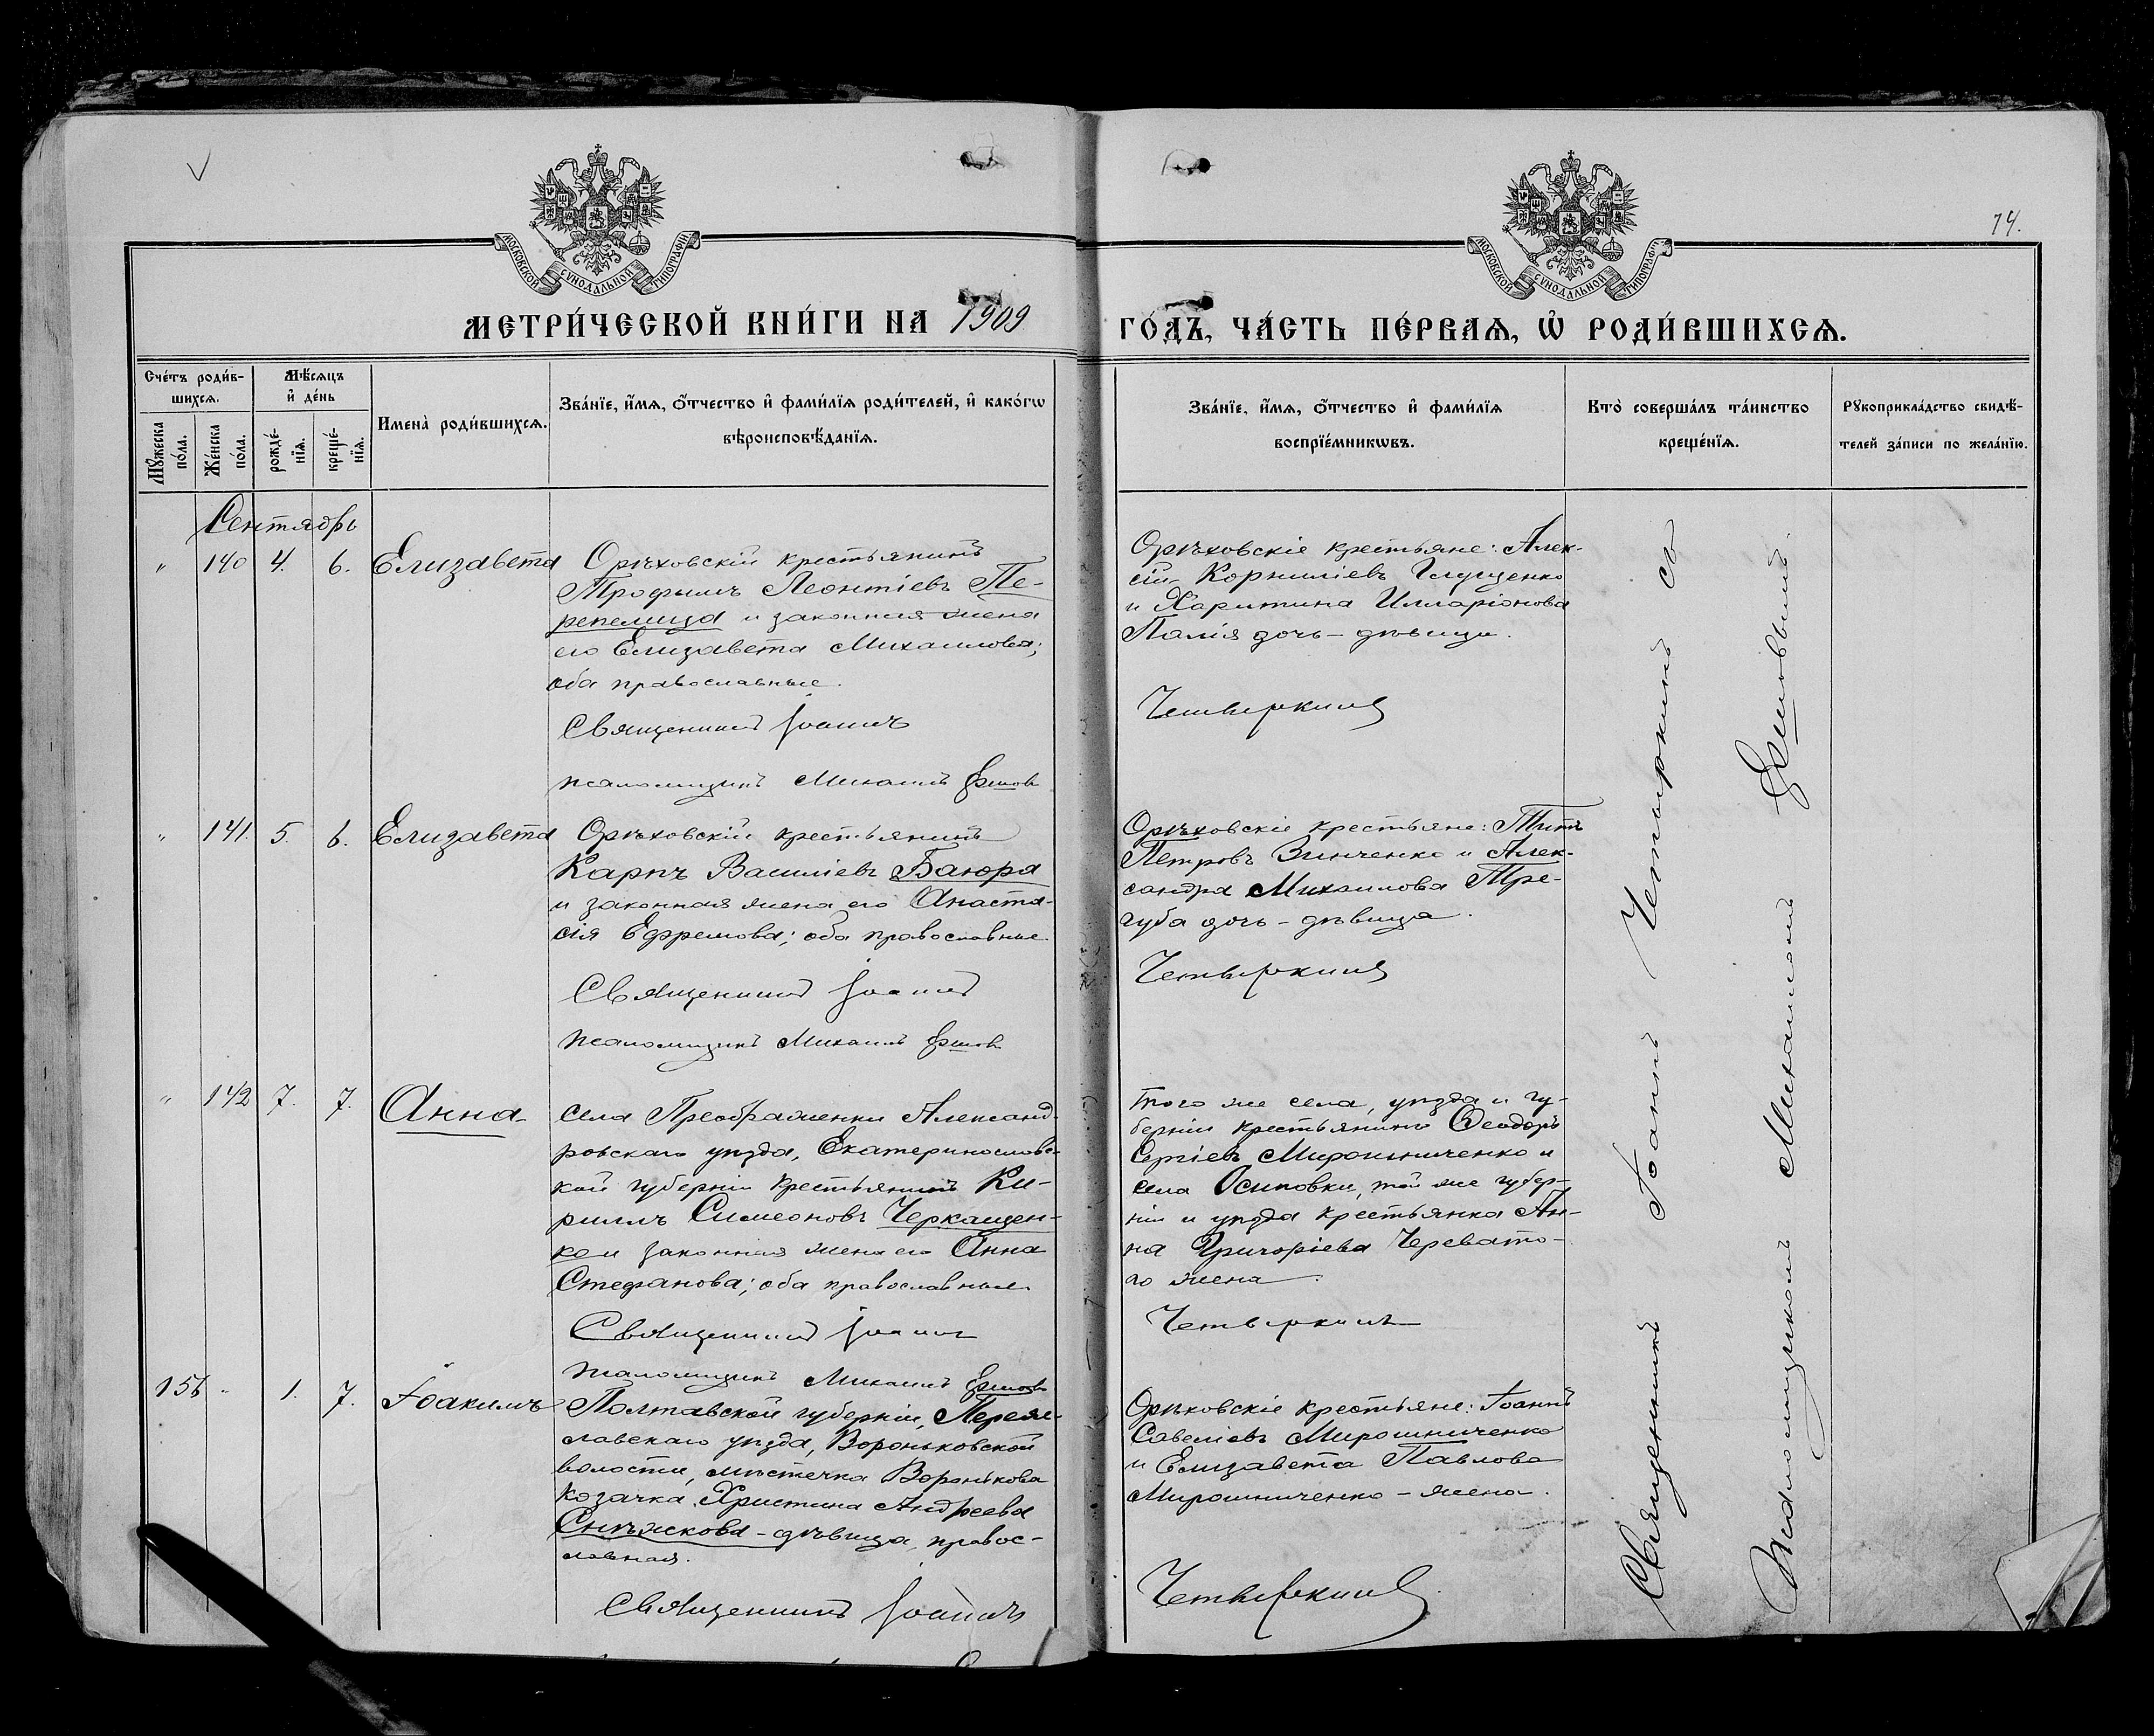 74.
МОСКОВСКОЙ СѴНОДАЛЬНОЙ ТИПОГРАФІИ
МОСКОВСКОЙ СѴНОДАЛЬНОЙ ТИПОГРАФІИ
МЕТРИ́ЧЕСКОЙ КНИ́ГИ НА 1909
ГО́ДЪ, ЧА́СТЬ ПЕ́РВАѦ, Ѡ҆ РОДИ́ВШИХСѦ.
Сче́тъ роди́в-
шихсѧ.
Мꙋ́жеска по́ла.
Же́нска по́ла.
Мѣ́сѧцъ
и҆ де́нь
рожде́-
нїѧ.
креще́-
нїѧ.
Имена̀ роди́вшихсѧ.
Зва́нїе, и҆́мѧ, ѻ҆́тчество и҆ фами́лїѧ роди́телей, и҆ како́гѡ
вѣроисповѣ́данїѧ.
Зва́нїе, и҆́мѧ, ѻ҆́тчество и҆ фами́лїѧ
воспрїе́мникѡвъ.
Кто̀ соверша́лъ та́инство
креще́нїѧ.
Рꙋкоприкла́дство свидѣ́-
телей за́писи по жела́нїю.
Сентябрь
" 140 4. 6. Елизавета
Орѣховскій крестьянинъ
Трофимъ Леонтіевъ Пе-
репелица и законная жена
его Елизавета Михаилова;
оба православные.
Священникъ Іоаннъ
псаломщикъ Михаилъ Ершов
Орѣховскіе крестьяне: Алек-
сій Корниліевъ Глущенко
и Харитина Илларіонова
Палія дочь - дѣвица.
Четыркинъ
" 141. 5. 6. Елизавета
Орѣховскій крестьянинъ
Карпъ Василіевъ Баюра
и законная жена его Анаста-
сія Ефремова; оба православные
Священникъ Іоаннъ
псаломщикъ Михаилъ Ершов
Орѣховскіе крестьяне: Титъ
Петровъ Зинченко и Алек-
сандра Михаилова Тре-
губа дочь - дѣвица.
Четыркинъ
" 142 7. 7. Анна
села Преображенки Александ-
ровскаго уѣзда, Екатеринославс-
кой губерніи крестьянинъ Ки-
риллъ Симеоновъ Черкащен-
ко и законная жена его Анна
Стефанова; оба православные
Священникъ Іоаннъ
псаломщикъ Михаилъ Ершов
того же села, уѣзда и гу-
берніи крестьянинъ Ѳеодоръ
Сергіевъ Мирошниченко и
села Осиповки, той же губер-
ніи и уѣзда крестьянка Ан-
на Григоріева Черевато-
го жена.
Четыркинъ
156 " 1. 7. Іоакимъ
Полтавской губерніи, Перея-
славскаго уѣзда, Вороньковской
волости, мѣстечка Воронькова
козачка Христина Андреева
Снѣжкова - дѣвица, правос-
лавная.
Священникъ Іоаннъ
Орѣховскіе крестьяне: Іоаннъ
Савеліевъ Мирошниченко
и Елизавета Павлова
Мирошниченко - жена.
Четыркинъ
Священникъ Іоаннъ Четыркинъ съ
Псаломщикомъ Михаиломъ Ершовымъ.